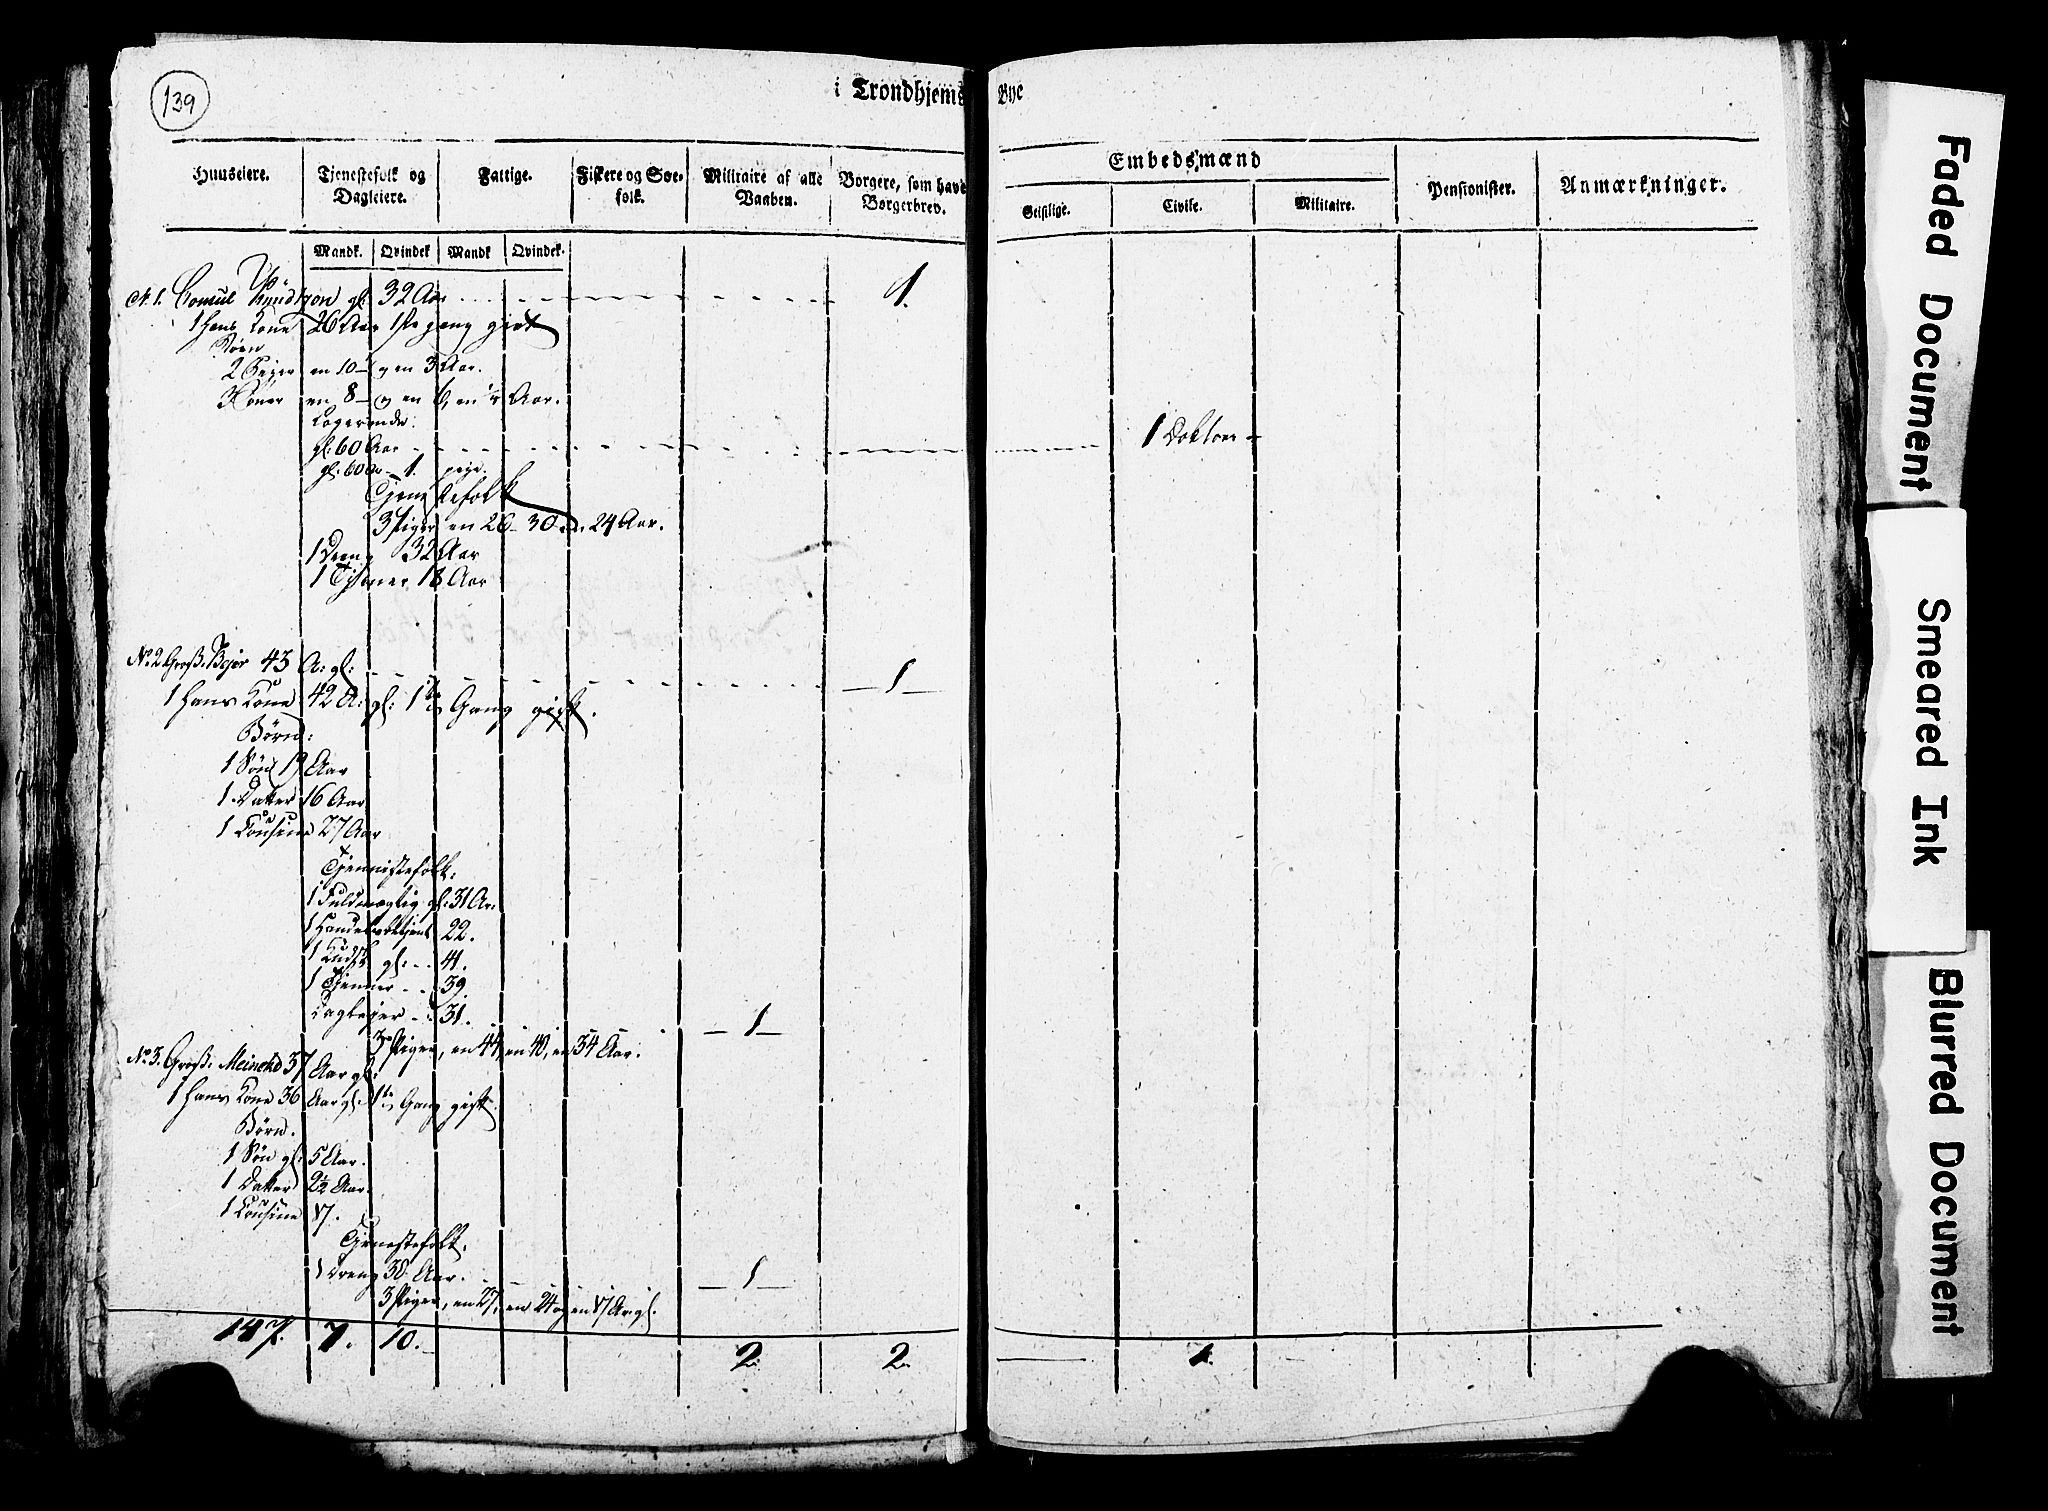 139
i Trondhjems Bye
Huuseiere. Tjenestefolk og Dagleiere. Fattige. Fiskere og Søefolk. Militaire af alle Vaaben. Borgere, som have Borgerbrev. Embedsmænd Pensionister. Anmærkninger.
Geistlige. Civile. Militaire.
Mandk. Qvindek Mandk Qvindek.
N. 1. Consul Knudtzon gl: 32 Aar 1.
1 Hans Kone 26 Aar 1ste gang givt
Børn
2 Piger en 10 og en 3 Aar.
3 Søner en 8 og en 6, en Aar.
Logerende:
gl: 60 Aar 1 Doktor
gl: 60 1. pige.
Tjenestefolk
3 Piger en 26 30 24 Aar.
1 Dreng 32 Aar
1 Tjener 18 Aar
No. 2 Gross: 43 A: gl: 1
1 Hans Kone 42 A: gl: 1te Gang gift.
Børn:
1 Søn 19 Aar
1 Datter 16 Aar
1 Cousine 27 Aar
Tjennistefolk:
1 Fuldmægtig gl: 31 Ar:
1 22.
1 Kudsk gl: 41.
1 Tjenner 39
Dagleier 31. 1
3 Piger, en 44, en 40, en 34 Aar.
No. 3. Gross: Meincke 37 Aar gl:
1 Hans Kone 36 Aar gl: 1te Gang gift.
Børn.
1 Søn gl: 5 Aar.
1 Datter 2½ Aar.
1 Cousine 17.
Tjenestefolk.
1 Dreng 30 Aar. 1
3 Piger, en 27, en 24 og en 17 Ar gl.
14 7. 7. 10. 2. 2. 1.
Faded Document
Smeared Ink
Blurred Document